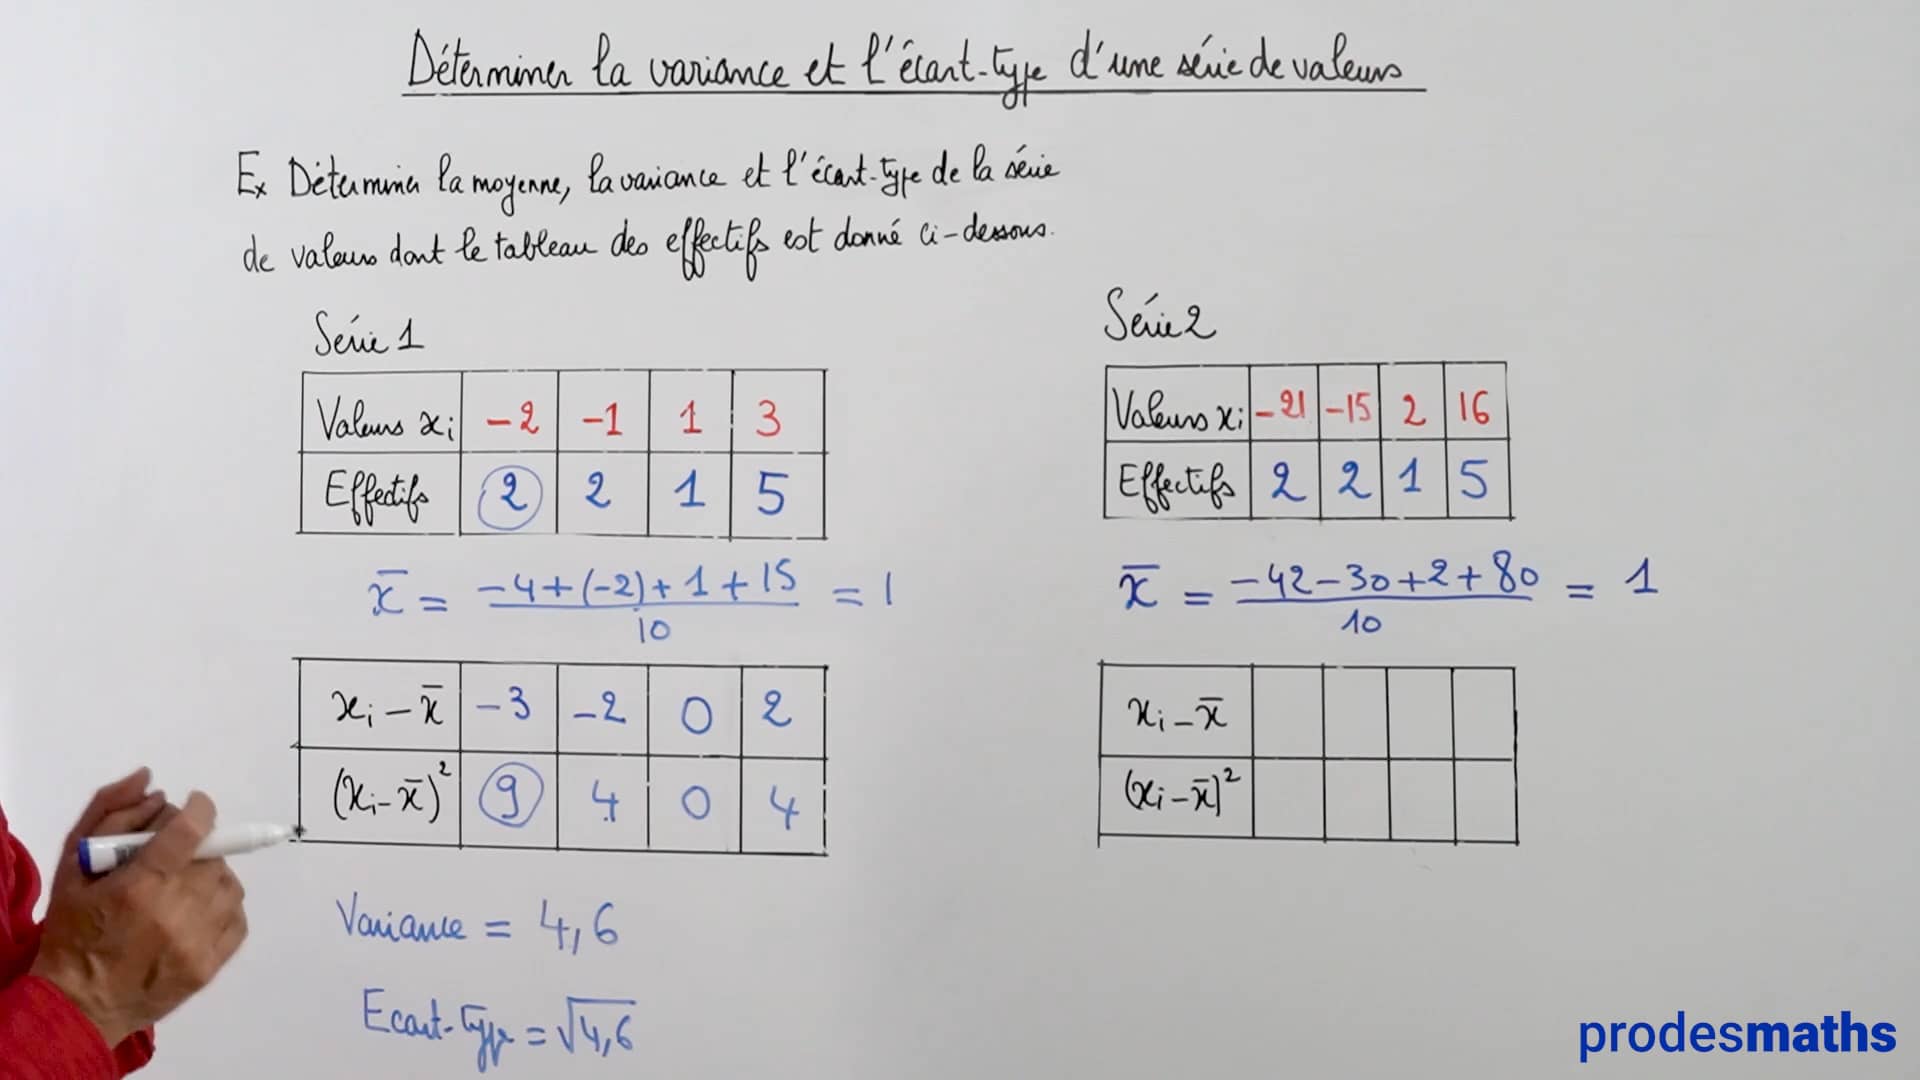 Déterminer la variance et l'écart-type d'une série de valeurs
Ex Déterminer la moyenne, la variance et l'écart-type de la série
de valeurs dont le tableau des effectifs est donné ci-dessous.
Série 1
Valeurs xᵢ -2 -1 1 3
Effectifs 2 2 1 5
x̄ = (-4+(-2)+1+15)/10 = 1
xᵢ - x̄ -3 -2 0 2
(xᵢ - x̄)² 9 4 0 4
Variance = 4,6
Ecart-type = √4,6
Série 2
Valeurs xᵢ -21 -15 2 16
Effectifs 2 2 1 5
x̄ = (-42-30+2+80)/10 = 1
xᵢ - x̄
(xᵢ - x̄)²
prodesmaths